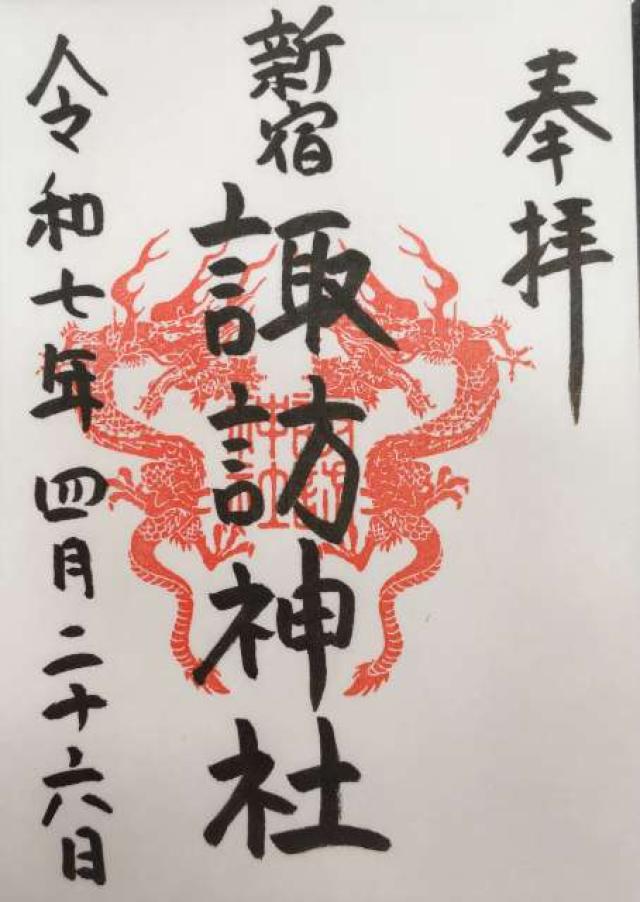 奉拝
新宿
諏訪神社
令和七年四月二十六日